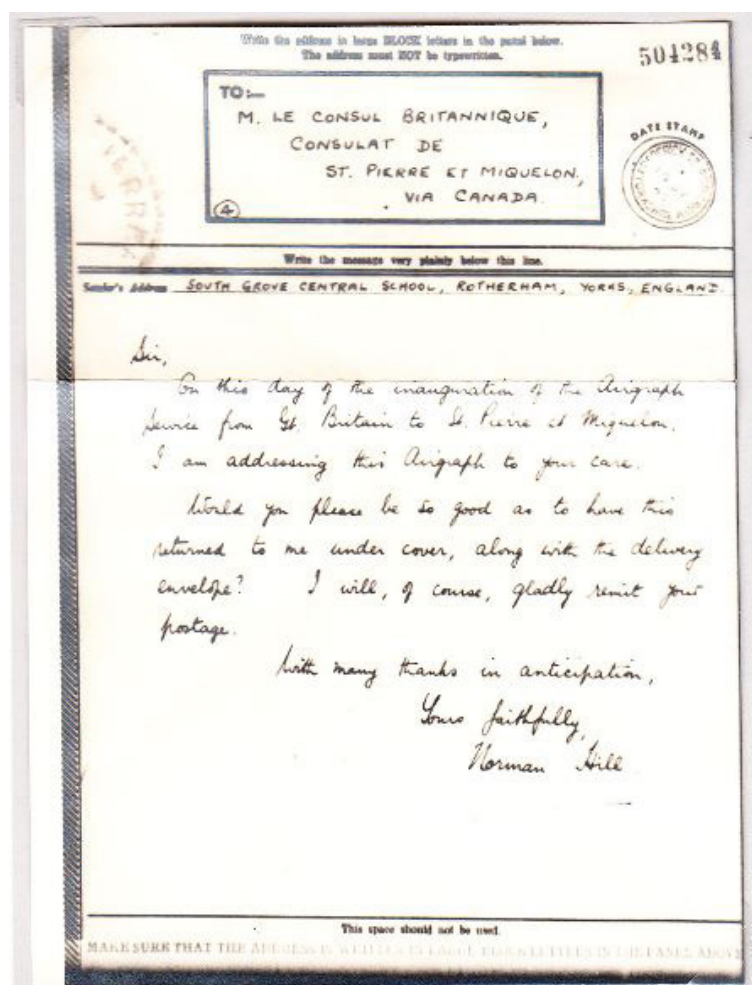 Write the address in large BLOCK letters in the panel below.
The address must NOT be typewritten.
504284
TO:—
M. LE CONSUL BRITANNIQUE,
CONSULAT DE
ST. PIERRE ET MIQUELON,
VIA CANADA.
4
DATE STAMP
Write the message very plainly below this line.
Sender's Address SOUTH GROVE CENTRAL SCHOOL, ROTHERHAM, YORKS, ENGLAND.
Sir,
On this day of the inauguration of the Airgraph
Service from Gt. Britain to St. Pierre et Miquelon,
I am addressing this Airgraph to your care.
Would you please be so good as to have this
returned to me under cover, along with the delivery
envelope? I will, of course, gladly remit your
postage.
With many thanks in anticipation,
Yours faithfully,
Norman Hill
This space should not be used.
MAKE SURE THAT THE ADDRESS IS WRITTEN IN LARGE BLOCK LETTERS IN THE PANEL ABOVE